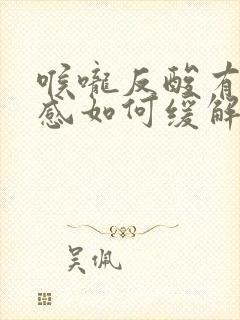 喉咙反酸有
感如何缓解
吴佩